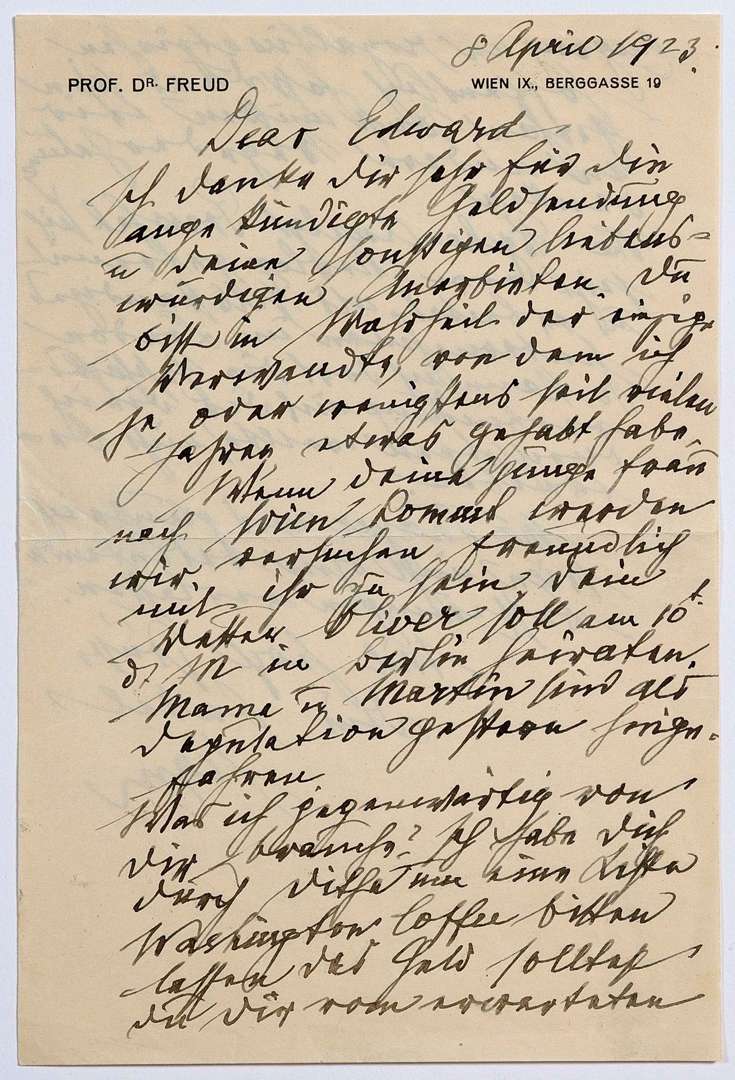 8 April 1923.
PROF. DR. FREUD
WIEN IX., BERGGASSE 19
Dear Edward
Ich danke dir sehr für die
angekündigte Geldsendung
u deine sonstigen liebens=
würdigen Anerbieten. Du
bist in Wahrheit der einzige
Verwandte, von dem ich
je oder wenigstens seit vielen
Jahren etwas gehabt habe.
Wenn deine junge Frau
nach Wien kommt werden
wir versuchen freundlich
mit ihr zu sein. Dein
Vetter Oliver soll am 10t
d M in Berlin heiraten.
Mama u Martin sind als
Deputation gestern hinge-
fahren.
Was ich gegenwärtig von
dir brauche? Ich habe dich
durch Ditha um eine Kiste
Washington Coffee bitten
lassen das Geld solltest
du dir vom erwarteten